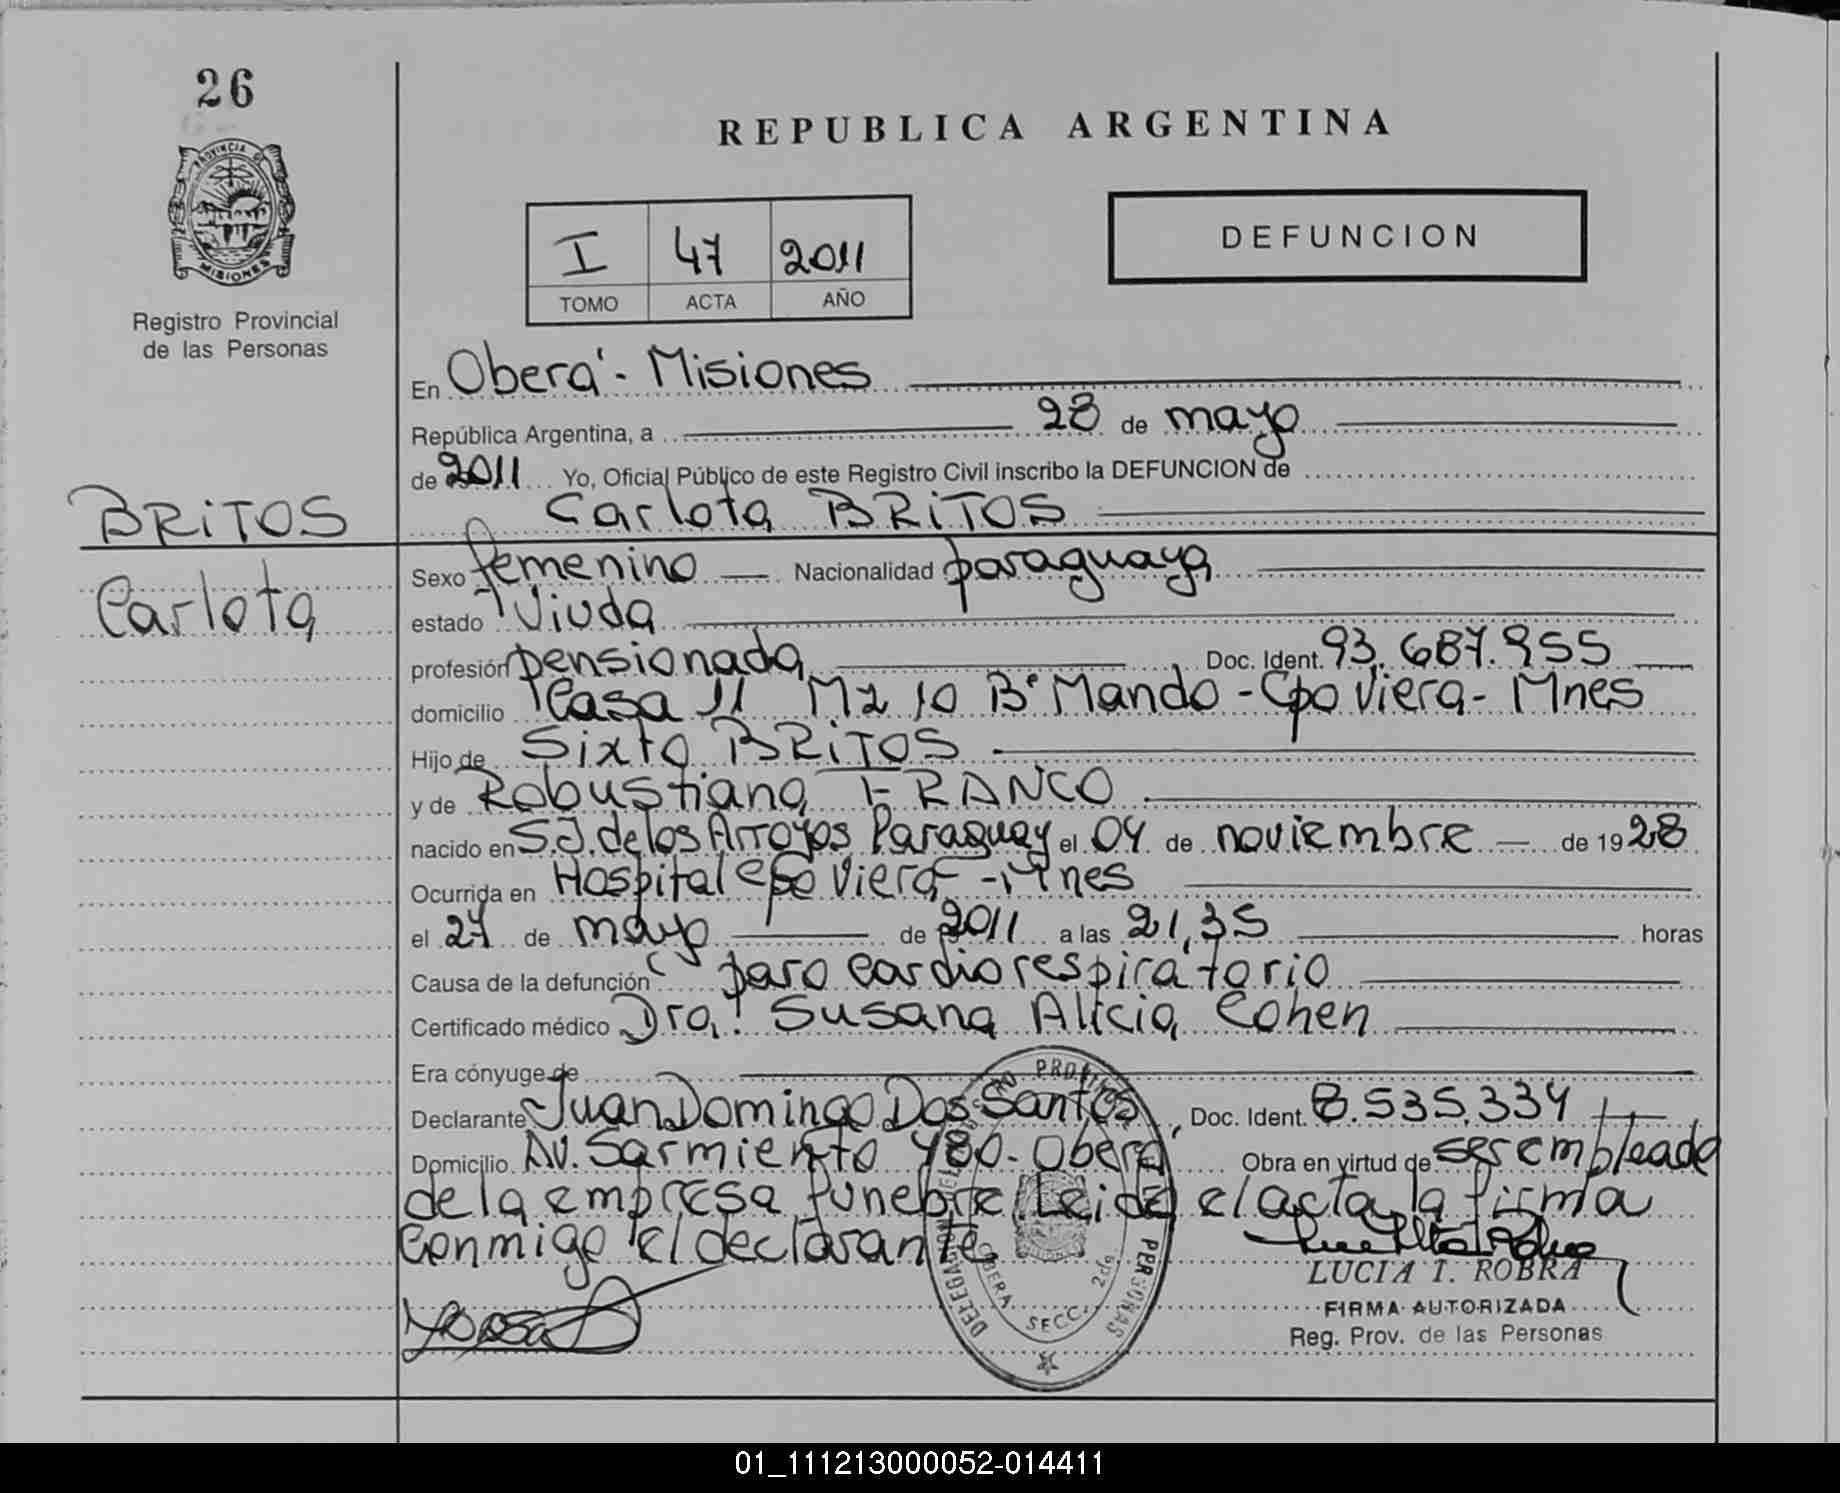 26
REPUBLICA ARGENTINA
PROVINCIA DE
MISIONES
Registro Provincial
de las Personas
I 47 2011
TOMO ACTA AÑO
DEFUNCION
En Oberá - Misiones
República Argentina, a 28 de mayo
de 2011 Yo, Oficial Público de este Registro Civil inscribo la DEFUNCION de
BRITOS
Carlota BRITOS
Carlota
Sexo femenino Nacionalidad paraguaya
estado Viuda
profesión pensionada Doc. Ident. 93.687.955
domicilio Casa 11 Mz 10 Bº Mando - Cpo Viera - Mnes
Hijo de Sixto BRITOS
y de Robustiana FRANCO
nacido en S.J. de los Arroyos Paraguay el 04 de noviembre de 1928
Ocurrida en Hospital Cpo Viera - Mnes
el 27 de mayo de 2011 a las 21,35 horas
Causa de la defunción paro cardiorespiratorio
Certificado médico Dra. Susana Alicia Cohen
Era cónyuge de
Declarante Juan Domingo Dos Santos, Doc. Ident. 8.535.334
Domicilio Av. Sarmiento 480 - Oberá Obra en virtud de ser empleado
de la empresa funebre Leida el acta la firma
conmigo el declarante
LUCIA I. ROBRA
FIRMA AUTORIZADA
Reg. Prov. de las Personas
OBERA SECC. 2da
PERSONAS
01_111213000052-014411